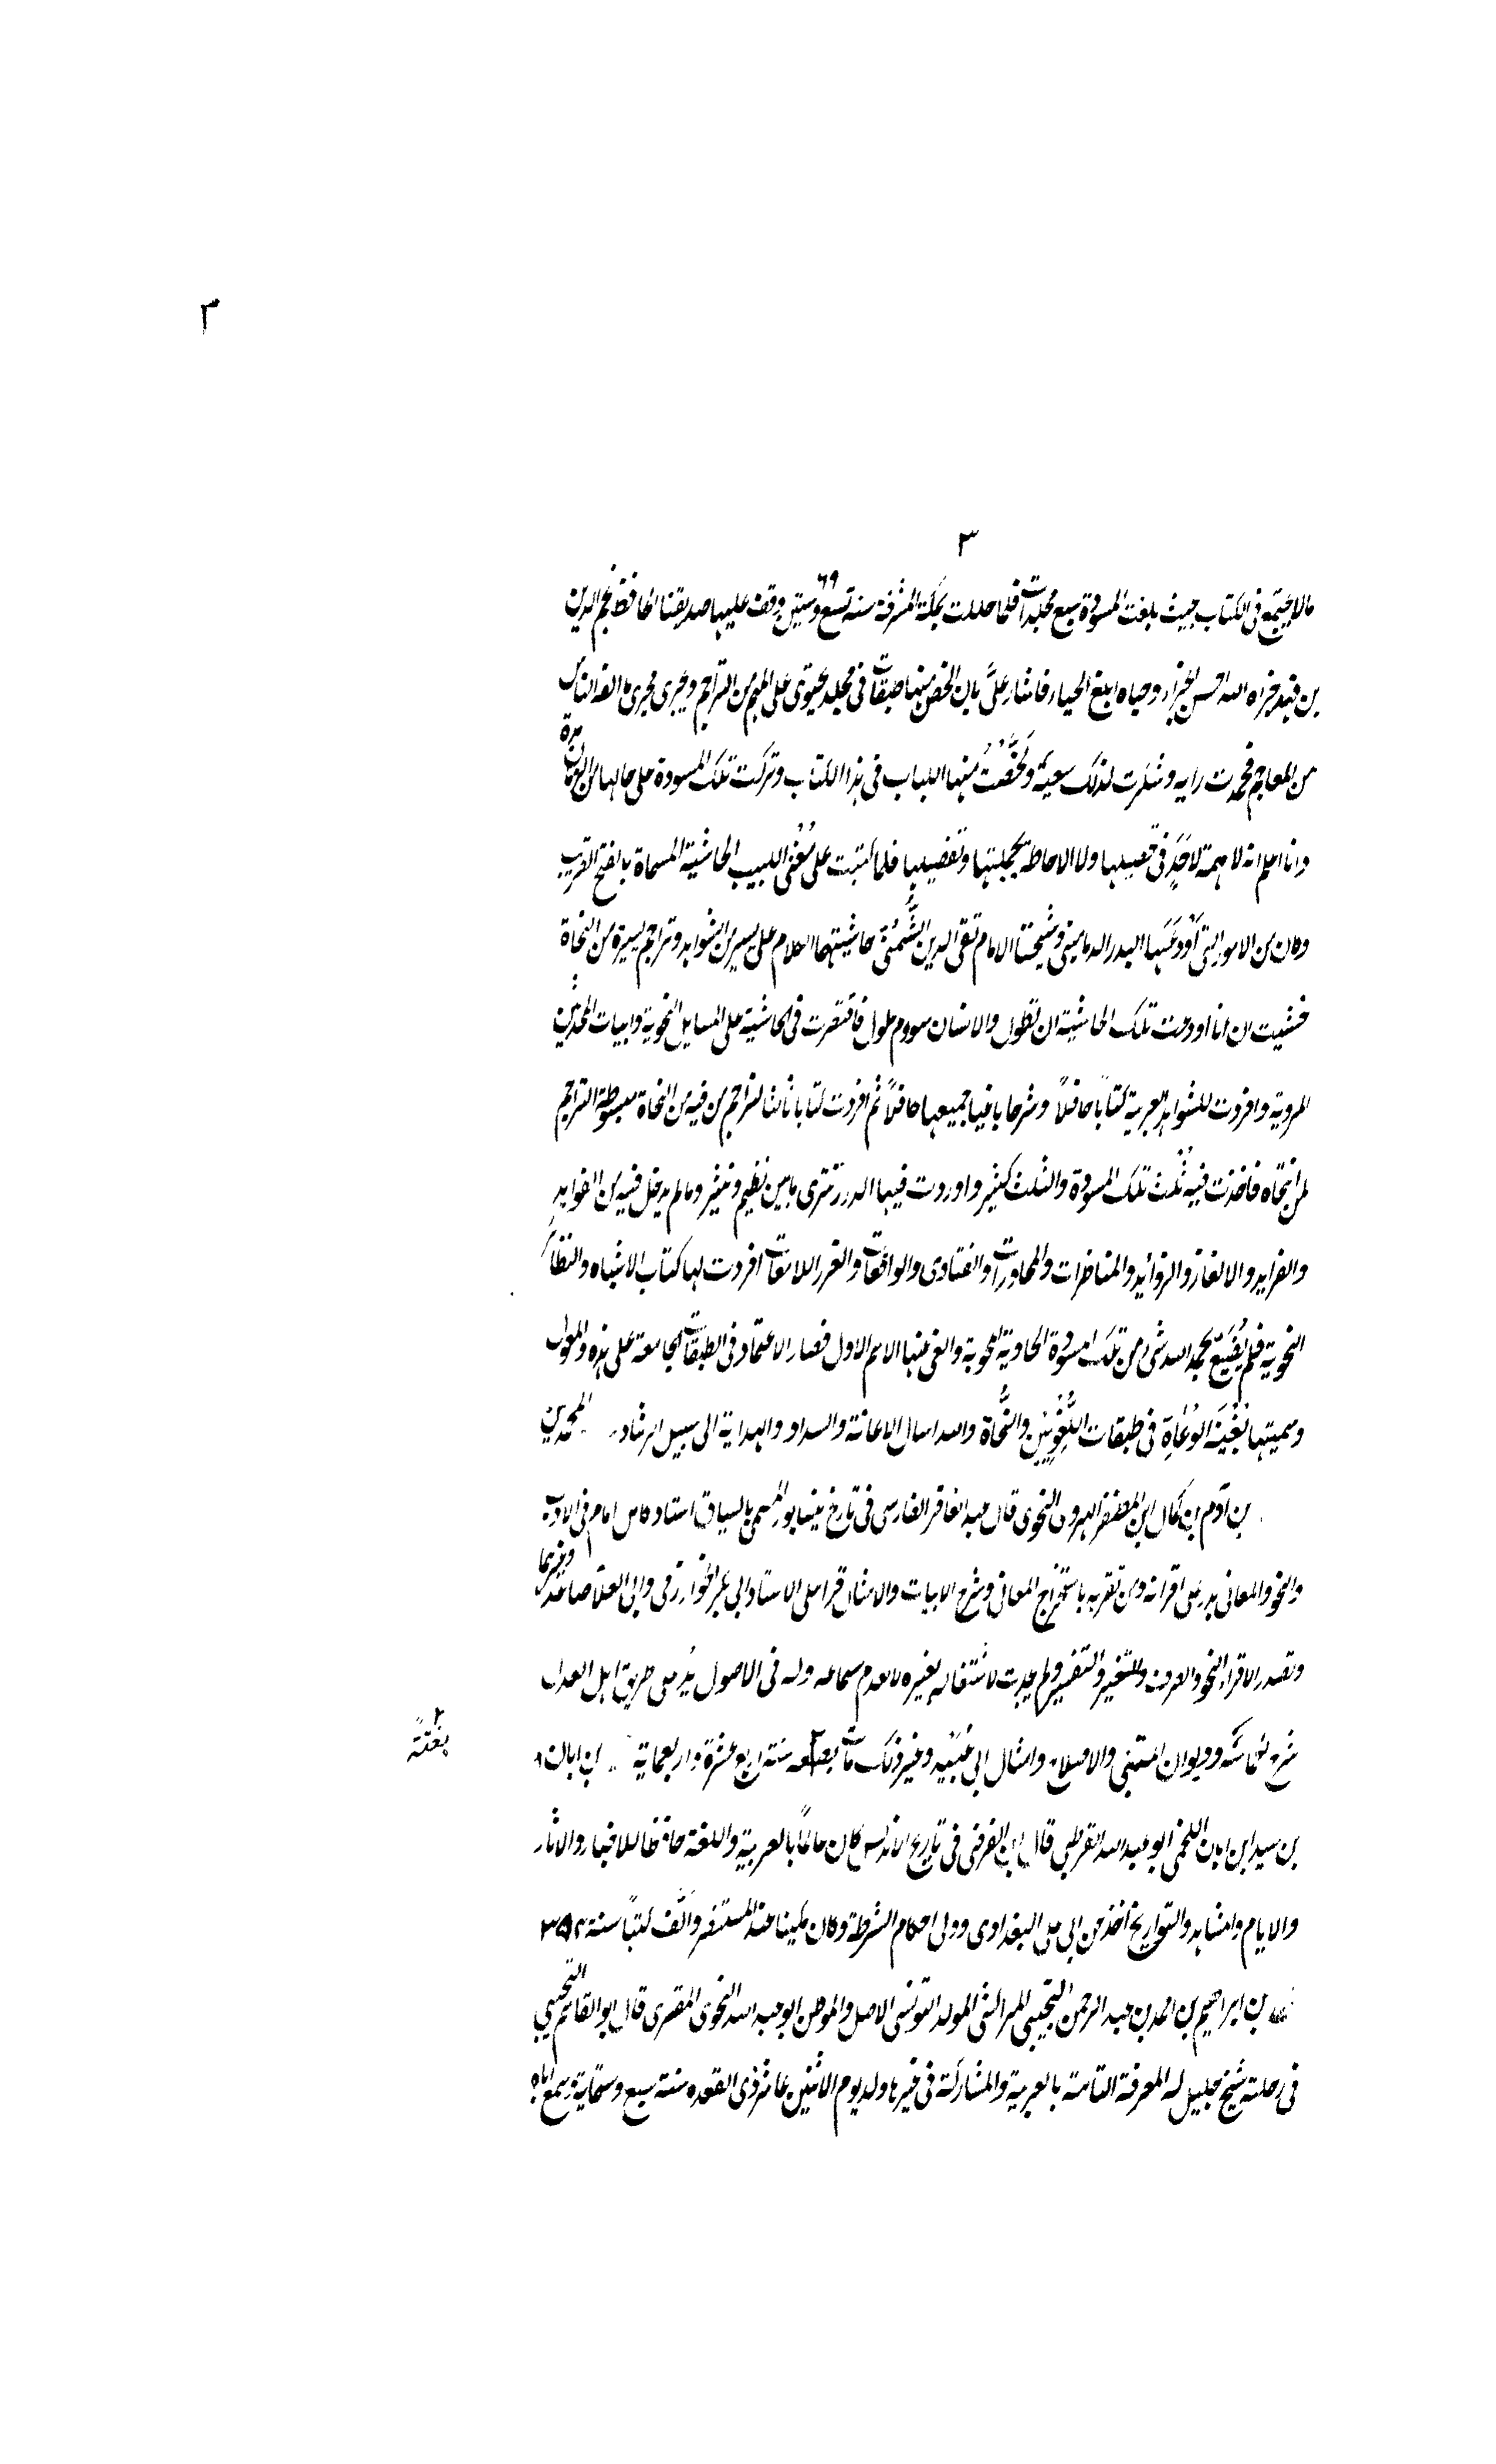 ٣
٣
مالا يجتمع فى الكتاب بحيث بلغت المسودة سبع مجلدات فلما حللت بمكة المشرفة سنة تسع وستين ٦٩ وقف عليها صديقنا الحافظ نجم الدين
بن فهد جزاه الله احسن الجزاء وحباه ابلغ الحباء فاشار علىَّ بان الخص منها طبقات فى مجلد يحتوى على المهم من التراجم ويجرى مجرى ما الفه الناس
من المعاجم فحمدت رايه وشكرت لذلك سعيه ولَخَّصْتُ منها اللباب فى هذا الكتاب وتركت تلك المسودة على حالها من الزمان مدة
وانا اعلم انه لا همة لاحَدٍ فى تحصيلها ولا الاحاطة بجملتها وتفصيلها فلما كتبت على مُغْنى اللبيب الحاشية المسماة بالفتح القريب
وكان من الامور التى اَوْدَعَتها البدر الدمامينى وشيخنا الامام تقى الدين الشُّمُنّى حاشيتهما الكلام على يسير من الشواهد وتراجم يسيرة من النحاة
خشيت ان انا اودعت تلك الحاشية ان تطول والانسان سووم ملول فاقتصرت فى الحاشية على المسايل النحوية وابيات المحدثين
المروية وافردت للشواهد العربية كتاباً حافلاً وشرحا باقيا جميعها كافلاً ثم افردت كتابا ثالثا لتراجم من فيه من النحاة مبسوطة التراجم
لمن انتحاه فاخذت فيه ثُلُث تلك المسودة والثلث كثير واوردت فيها الدرر تترى ما بين نظيم ونثير وما لم يدخل فيه من الفوايد
والفرايد والالغاز والزوائد والمناظرات والمحاورات والفتاوى والواقعات والغرر اللامعات افردت لها كتاب الاشباه والنظائر
النحوية فلم يُضَيع بحمد الله شىء من تلك المسودة الحاوية المحوية والغى منها الاسم الاول فصار الاعتماد فى الطبقات الجامعة على هذه والمعول
وسميتها بُغْيَة الوُعَاةِ فى طبقات اللُّغَوِيِّين والنُّحَّاة والله اسال الاعانة والسداد والهداية الى سبيل الرشاد المحمدين
بن آدم بن كمال ابى المظفر الهروى النحوى قال عبد الغافر الفارسى فى تاريخ نيسابور المسمى بالسياق استاد كامل امام فى الادب
والنحو والمعانى برز على اقرانه ومن تقدمه باستخراج المعانى وشرح الابيات والامثال قرا على الاستاد ابى بكر الخوارزمى وابى العلا صاعد وغيرهما
وتصدر لاقراء النحو والصرف والتفسير ولم يحدث لاشتغاله بغيره لا لعدم سماعه وله فى الاصول يد على طريق اهل العدل
شرح الحماسة وديوان المتنبى والاصلاح وامثال ابى عُبَيْد وغير ذلك مات سنة اربع عشرة واربعماية ابن ابان
بغتةً
بن سيد ابن ابان اللخمى ابو عبد الله القرطبى قال ابن الفرضى فى تاريخ الاندلس كان عالمًا بالعربية واللغة حافظا للاخبار والاثار
والايام والمشاهد والتواريخ اخذ من ابى على البغدادى وولى احكام الشرطة وكان مكينا عند المستنصر والّف كتبًا سنة ٣٥٤
بن ابراهيم بن احمد بن عبد الرحمن التجيبى المولد التونسى الاصل والموطن ابو عبد الله النحوى المقرى قال ابو القاسم التجيبى
فى رحلته شيخ جليل له المعرفة التامة بالعربية والمشاركة فى غيرها ولد يوم الاثنين عاشر ذى القعدة سنة سبع وستماية وسمع اباه